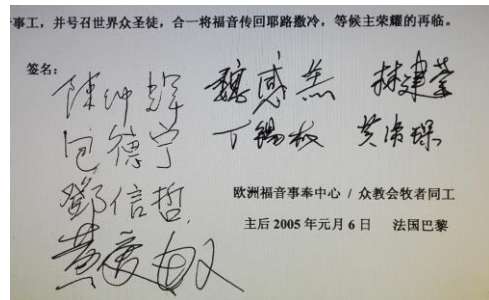 事工，并号召世界众圣徒，合一将福音传回耶路撒冷，等候主荣耀的再临。
签名：
陳仲輝 魏感恩 林建
包德宁 丁錫
鄧信哲
欧洲福音事奉中心 / 众教会牧者同工
主后 2005 年元月 6 日 法国巴黎
黄